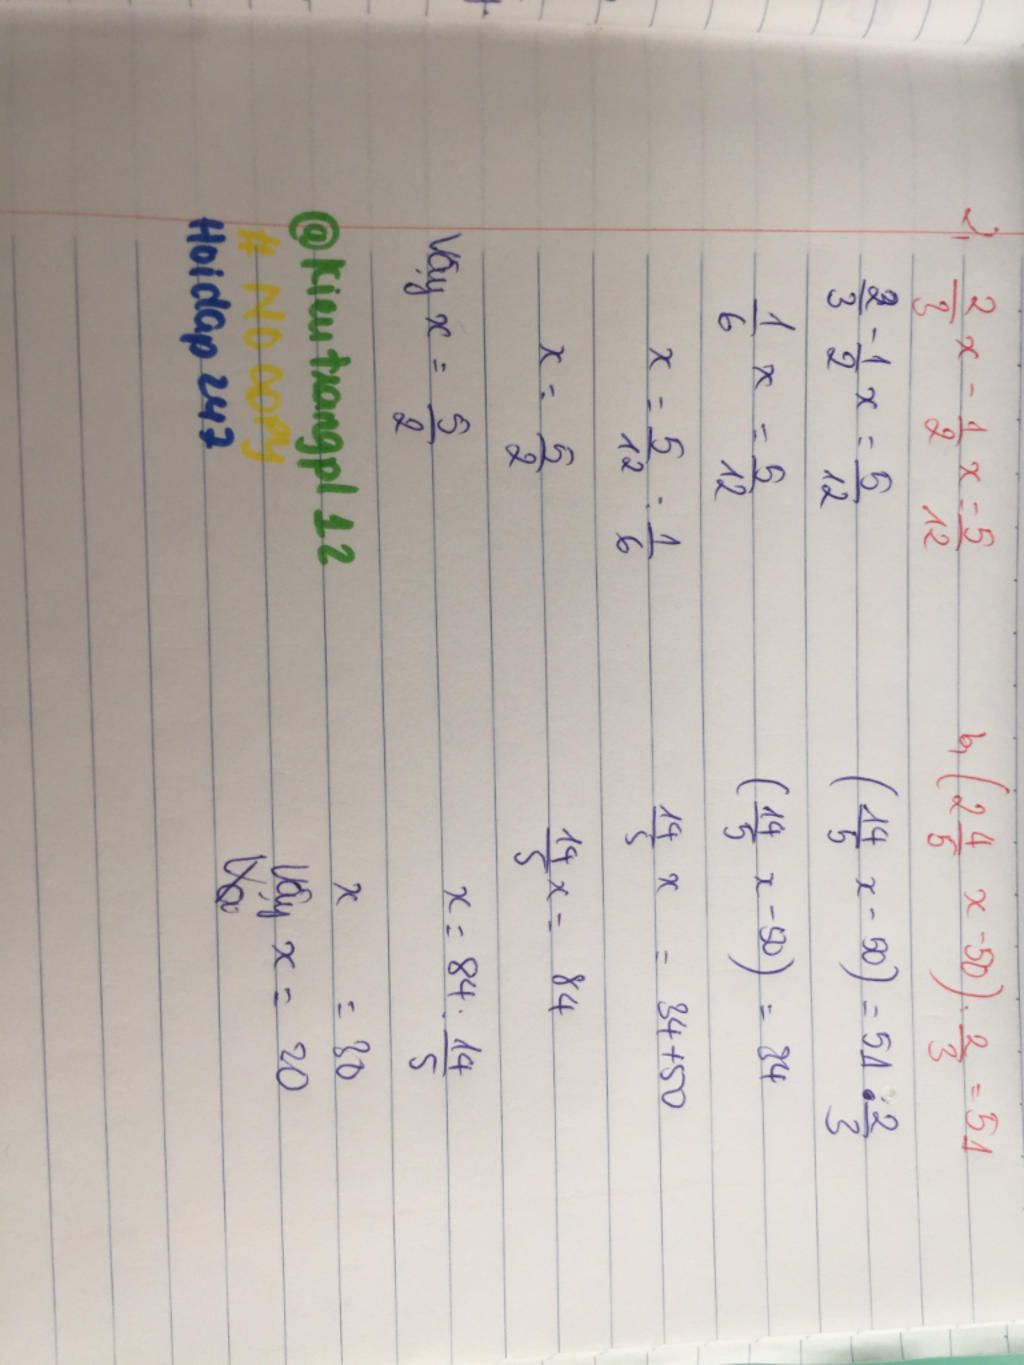 2, 2/3 x - 1/2 x = 5/12
2/3 - 1/2 x = 5/12
1/6 x = 5/12
x = 5/12 : 1/6
x = 5/2
Vậy x = 5/2
@Kieutrangpl12
# NO COPY
Hoidap 247
b, (2 4/5 x - 50) : 2/3 = 51
(14/5 x - 50) = 51 . 2/3
(14/5 x - 50) = 34
14/5 x = 34 + 50
14/5 x = 84
x = 84 : 14/5
x = 30
Vậy x = 20